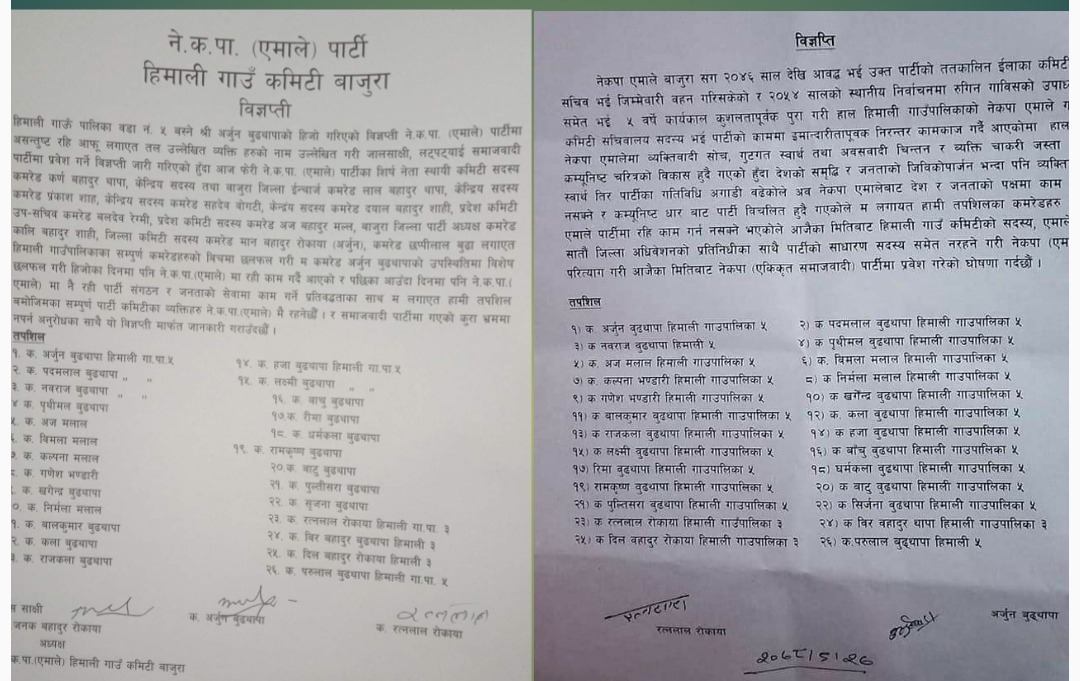 ने.क.पा. (एमाले) पार्टी
हिमाली गाउँ कमिटी बाजुरा
विज्ञप्ती
हिमाली गाऊँ पालिका वडा नं. ५ बस्ने श्री अर्जुन बुढथापाको हिजो गरिएको विज्ञप्ती ने.क.पा. (एमाले) पार्टीमा
असन्तुष्ट रहि आफू लगाएत तल उल्लेखित व्यक्ति हरुको नाम उल्लेखित गरी जालसाक्षी, लट्पट्याई समाजवादी
पार्टीमा प्रवेश गर्ने विज्ञप्ती जारी गरिएको हुँदा आज फेरी ने.क.पा. (एमाले) पार्टीका शिर्ष नेता स्थायी कमिटी सदस्य
कमरेड कर्ण बहादुर थापा, केन्द्रिय सदस्य तथा बाजुरा जिल्ला ईन्चार्ज कमरेड लाल बहादुर थापा, केन्द्रिय सदस्य
कमरेड प्रंकाश शाह, केन्द्रिय सदस्य कमरेड सहदेव बोगटी, केन्द्रय सदस्य कमरेड दयाल बहादुर शाही, प्रदेश कमिटी
उप-सचिव कमरेड बलदेव रेग्मी, प्रदेश कमिटी सदस्य कमरेड अज बहादुर मल्ल, बाजुरा जिल्ला पार्टी अध्यक्ष कमरेड
कालि बहादुर शाही, जिल्ला कमिटी सदस्य कमरेड मान बहादुर रोकाया (अर्जुन), कमरेड छप्पीलाल बुढा लगाएत
हिमाली गाउँपालिकाका सम्पुर्ण कमरेडहरुको बिचमा छलफल गरी म कमरेड अर्जुन बुढथापाको उपस्थितिमा विशेष
छलफल गरी हिजोका दिनमा पनि ने.क.पा.(एमाले) मा रही काम गर्दै आएको र पछिका आउँदा दिनमा पनि ने.क.पा.(
एमाले) मा नै रही पार्टी संगठन र जनताको सेवामा काम गर्ने प्रतिवद्धताका साथ म लगाएत हामी तपशिल
बमोजिमका सम्पुर्ण पार्टी कमिटीका व्यक्तिहरु ने.क.पा.(एमाले) मै रहनेछौं । र समाजवादी पार्टीमा गएको कुरा भ्रममा
नपर्न अनुरोधका साथै यो विज्ञप्ती मार्फत जानकारी गराउंदछौं ।
तपशिल
१. क. अर्जुन बुढथापा हिमाली गा.पा.५
२. क. पदमलाल बुढथापा " "
३. क. नवराज बुढथापा " "
४ क. पृथीमल बुढथापा
५. क. अज मलाल
क. विमला मलाल
क. कल्पना मलाल
क. गणेश भण्डारी
क. खगेन्द्र बुढथापा
०. क. निर्मला मलाल
१. क. बालकुमार बुढथापा
२. क. कला बुढथापा
३. क. राजकला बुढथापा
१४. क. हजा बुढथापा हिमाली गा.पा.५
१५. क. लक्ष्मी बुढथापा " "
१६. क. बाचु बुढथापा
१७.क. रीमा बुढथापा
१८. क. धर्मकला बुढथापा
१९. क. रामकृष्ण बुढथापा
२०.क. बाटु बुढथापा
२१. क. पुल्तीसरा बुढथापा
२२. क. सृजना बुढथापा
२३. क. रत्नलाल रोकाया हिमाली गा.पा. ३
२४. क. विर बहादुर बुढथापा हिमाली ३
२५. क. दिल बहादुर रोकाया हिमाली ३
२६. क. परुलाल बुढथापा हिमाली गा.पा. ५
साक्षी
जनक बहादुर रोकाया
अध्यक्ष
क.पा.(एमाले) हिमाली गाउँ कमिटी बाजुरा
क. अर्जुन बुढथापा
रत्नलाल
क. रत्नलाल रोकाया
विज्ञप्ति
नेकपा एमाले बाजुरा संग २०४६ साल देखि आवद्ध भई उक्त पार्टीको ततकालिन ईलाका कमिटी
सचिव भई जिम्मेवारी वहन गरिसकेको र २०५४ सालको स्थानीय निर्वाचनमा रुगिन गाविसको उपाध्
समेत भई ५ वर्षे कार्यकाल कुशलतापूर्वक पुरा गरी हाल हिमाली गाउँपालिकाको नेकपा एमाले ग
कमिटी सचिवालय सदस्य भई पार्टीको काममा इमान्दारीतापूवक निरन्तर कामकाज गर्दै आएकोमा हाल
नेकपा एमालेमा व्यक्तिवादी सोच, गुटगत स्वार्थ तथा अवसवादी चिन्तन र व्यक्ति चाकरी जस्ता
कम्यूनिष्ट चरित्रको विकास हुदै गएको हुँदा देशको समृद्धि र जनताको जिविकोपार्जन भन्दा पनि व्यक्ति
स्वार्थ तिर पार्टीका गतिविधि अगाडी वढेकोले अव नेकपा एमालेबाट देश र जनताको पक्षमा काम
नसक्ने र कम्युनिष्ट धार बाट पार्टी विचलित हुदै गएकोले म लगायत हामी तपशिलका कमरेडहरु
एमाले पार्टीमा रहि काम गर्न नसक्ने भएकोले आजैका मितिबाट हिमाली गाउँ कमिटीको सदस्य, एमाले
सातौ जिल्ला अधिवेशनको प्रतिनिधीका साथै पार्टीको साधारण सदस्य समेत नरहने गरी नेकपा (एम
परित्याग गरी आजैका मितिबाट नेकपा (एकिकृत समाजवादी) पार्टीमा प्रवेश गरेको घोषणा गर्दछौं ।
तपशिल
१) क. अर्जुन बुढथापा हिमाली गाउपालिका ५
२) क पदमलाल बुढथापा हिमाली गाउपालिका ५
३) क नवराज बुढथापा हिमाली ५
४) क पृथीमल बुढथापा हिमाली गाउपालिका ५
५) क अज मलाल हिमाली गाउपालिका ५
६) क. विमला मलाल हिमाली गाउपालिका ५
७) क. कल्पना भण्डारी हिमाली गाउपालिका ५
८) क निर्मला मलाल हिमाली गाउपालिका ५
९) क गणेश भण्डारी हिमाली गाउपालिका ५
१०) क खगेंन्द्र बुढथापा हिमाली गाउपालिका ५
११) क बालकुमार बुढथापा हिमाली गाउपालिका ५
१२) क. कला बुढथापा हिमाली गाउपालिका ५
१३) क राजकला बुढथापा हिमाली गाउपालिका ५
१४) क हजा बुढथापा हिमाली गाउपालिका ५
१५) क लक्ष्मी बुढथापा हिमाली गाउपालिका ५
१६) क बाँचु बुढथापा हिमाली गाउपालिका ५
१७) रिमा बुढथापा हिमाली गाउपालिका ५
१८) धर्मकला बुढथापा हिमाली गाउपालिका ५
१९) रामकृष्ण बुढथापा हिमाली गाउपालिका ५
२०) क बाटु बुढथापा हिमाली गाउपालिका ५
२१) क पुल्तिसरा बुढथापा हिमाली गाउपालिका ५
२२) क सिर्जना बुढथापा हिमाली गाउपालिका ५
२३) क रत्नलाल रोकाया हिमाली गाउँपालिका ३
२४) क बिर वहादुर थापा हिमाली गाउपालिका ३
२५) क दिल वहादुर रोकाया हिमाली गाउपालिका ३
२६) क.परुलाल बुढ्थापा हिमाली ५
रत्नलाल रोकाया
अर्जुन बुढ्थापा
२०७८/५/२७